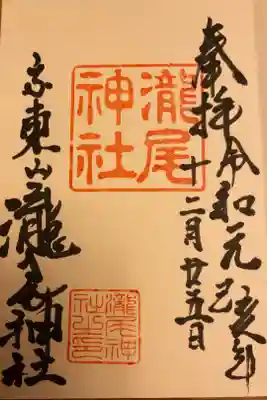 奉拝令和元己亥年
十二月廿五日
瀧尾
神社
京東山瀧尾神社
瀧尾神
社之印